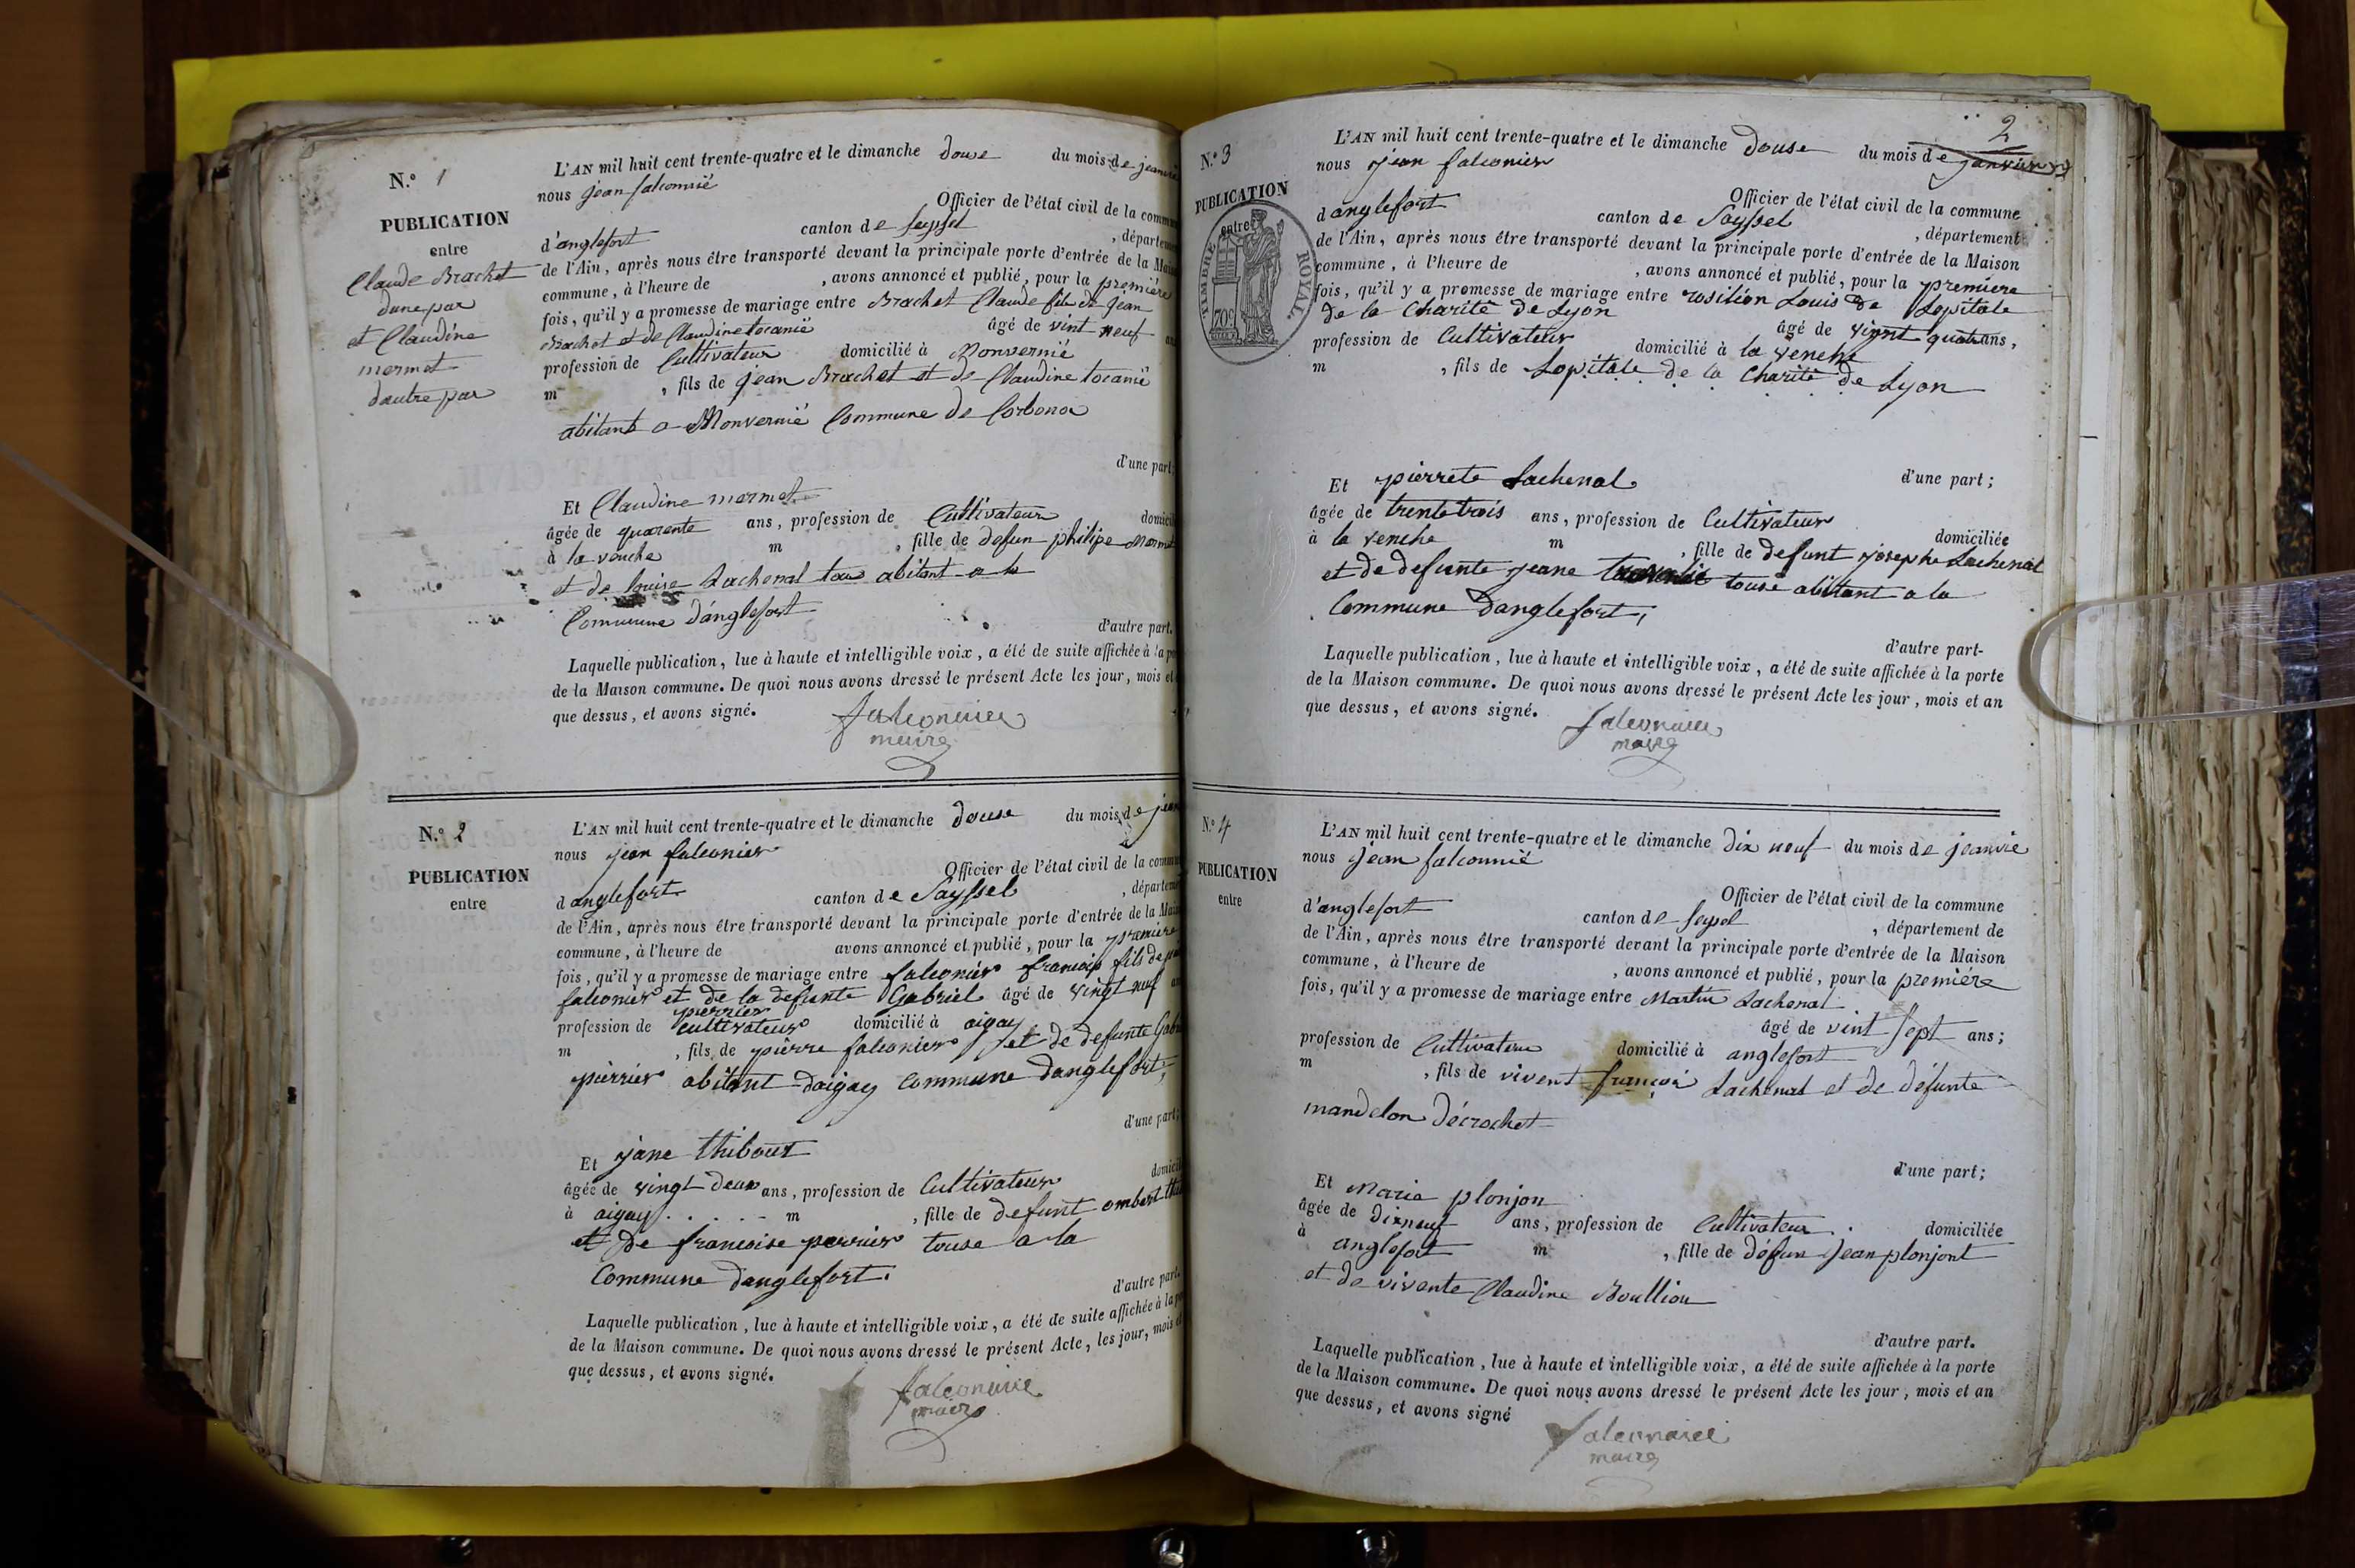 N.º 1
PUBLICATION
entre
Claude Brachet
dune par
et Claudine
mermet
dautre par
L'AN mil huit cent trente-quatre et le dimanche douse du mois de
nous jean falconnié
Officier de l'état civil de la
d'anglefort canton de seyssel
de l'Ain, après nous être transporté devant la principale porte d'entrée de la
commune, à l'heure de , avons annoncé et publié, pour la premiére
fois, qu'il y a promesse de mariage entre Brachet Claude fils de jean
Brachet et de Claudine tocanié âgé de vint neuf
profession de Cultivateur domicilié à Monvernié
m , fils de jean Brachet et de Claudine tocanié
abitant a Monvernié Commune de Corbonod
d'une part;
Et Claudine mermet
âgée de quarente ans, profession de Cultivateur
à la venche m , fille de defun philipe
et de louise Lachenal tous abitant a la
Commune d'anglefort
d'autre part.
Laquelle publication, lue à haute et intelligible voix, a été de suite affichée à la
de la Maison commune. De quoi nous avons dressé le présent Acte les jour, mois et
que dessus, et avons signé.
falconnier
maire
N.º 2
PUBLICATION
entre
L'AN mil huit cent trente-quatre et le dimanche douse du mois de
nous jean falconier
Officier de l'état civil de la
d anglefort canton de Sayssel
de l'Ain, après nous être transporté devant la principale porte d'entrée de la
commune, à l'heure de avons annoncé et publié, pour la premiere
fois, qu'il y a promesse de mariage entre falconier francois fils de
falconier et de la defunte Gabriel âgé de vingt neuf
pierrier
profession de cultivateur domicilié à aigay
m , fils de pierre falconier et de defunte
pierrier abitant daigay commune danglefort,
d'une part;
Et jane thibout
âgée de vingt deux ans, profession de Cultivateur
à aigay m , fille de defunt ombert
et de francoise perrier touse a la
Commune danglefort.
d'autre part.
Laquelle publication, lue à haute et intelligible voix, a été de suite affichée à la
de la Maison commune. De quoi nous avons dressé le présent Acte, les jour, mois
que dessus, et avons signé.
falconnier
maire
2
N.º 3
PUBLICATION
entre
TIMBRE ROYAL.
70c
L'AN mil huit cent trente-quatre et le dimanche douse du mois de janvier
nous jean falconier
Officier de l'état civil de la commune
d anglefort canton de Sayssel , département
de l'Ain, après nous être transporté devant la principale porte d'entrée de la Maison
commune, à l'heure de , avons annoncé et publié, pour la premiere
fois, qu'il y a promesse de mariage entre rosilion Louis de Lopitale
de la Charité de Lyon âgé de vignt quatre ans,
profession de Cultivateur domicilié à la venche
m , fils de Lopitale de la Charité de Lyon
d'une part;
Et pierrete Lachenal
âgée de trente trois ans, profession de Cultivateur domiciliée
à la venche m , fille de defunt josephe Lachenal
et de defunte jeane touse abitant a la
Commune Danglefort,
d'autre part-
Laquelle publication, lue à haute et intelligible voix, a été de suite affichée à la porte
de la Maison commune. De quoi nous avons dressé le présent Acte les jour, mois et an
que dessus, et avons signé.
falconnier
maire
N.º 4
PUBLICATION
entre
L'AN mil huit cent trente-quatre et le dimanche dix neuf du mois de jeanvie
nous jean falconnié
Officier de l'état civil de la commune
d'anglefort canton de seysel , département de
de l'Ain, après nous être transporté devant la principale porte d'entrée de la Maison
commune, à l'heure de , avons annoncé et publié, pour la premiére
fois, qu'il y a promesse de mariage entre Martin Lachenal
âgé de vint sept ans;
profession de Cultivateur domicilié à anglefort
m , fils de vivent françoi Lachenal et de défunte
mandelon décrochet
d'une part;
Et Marie plonjon
âgée de dixneuf ans, profession de Cultivateur domiciliée
à anglefort m , fille de défun jean plonjont
et de vivente Claudine Boullion
d'autre part.
Laquelle publication, lue à haute et intelligible voix, a été de suite affichée à la porte
de la Maison commune. De quoi nous avons dressé le présent Acte les jour, mois et an
que dessus, et avons signé
falconnier
maire